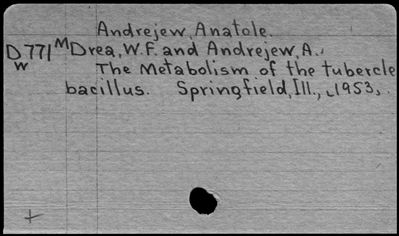 Andrejew, Anatole.
D771 M Drea, W.F. and Andrejew, A.,
W The Metabolism of the tubercle
bacillus. Springfield, Ill., [1953].
+